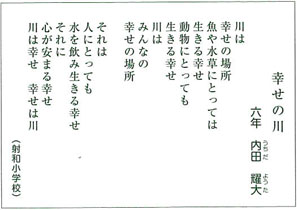 幸せの川
六年 内田 耀大
うちだ ようた
川は
幸せの場所
魚や水草にとっては
生きる幸せ
動物にとっても
生きる幸せ
川は
みんなの
幸せの場所
それは
人にとっても
水を飲み生きる幸せ
それに
心が安まる幸せ
川は幸せ 幸せは川
(射和小学校)